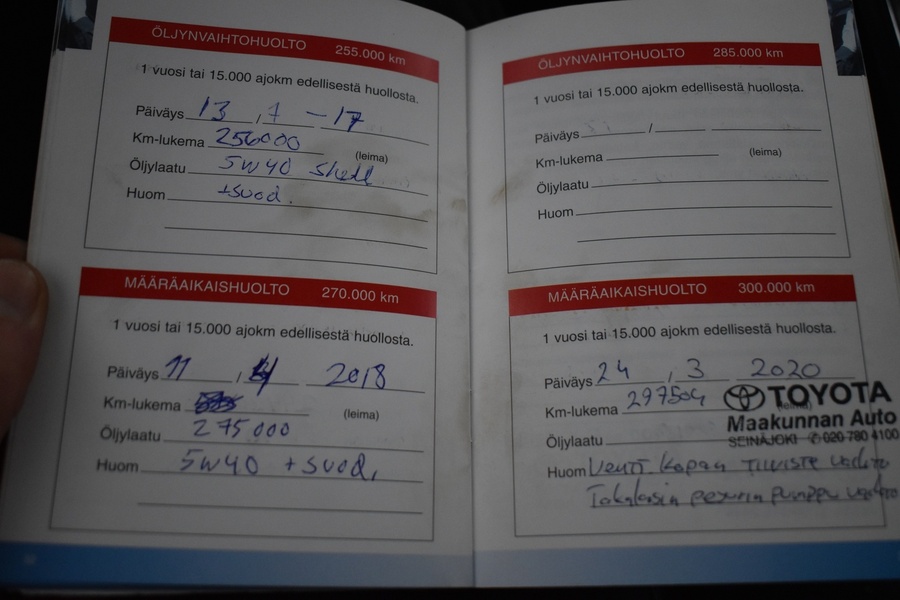 ÖLJYNVAIHTOHUOLTO 255.000 km
1 vuosi tai 15.000 ajokm edellisestä huollosta.
Päiväys 13 / 7 -17
Km-lukema 256000 (leima)
Öljylaatu 5W40 Shell
Huom +suod.
MÄÄRÄAIKAISHUOLTO 270.000 km
1 vuosi tai 15.000 ajokm edellisestä huollosta.
Päiväys 11 / 4 2018
Km-lukema (leima)
Öljylaatu 275000
Huom 5W40 +suod,
ÖLJYNVAIHTOHUOLTO 285.000 km
1 vuosi tai 15.000 ajokm edellisestä huollosta.
Päiväys /
Km-lukema (leima)
Öljylaatu
Huom
MÄÄRÄAIKAISHUOLTO 300.000 km
1 vuosi tai 15.000 ajokm edellisestä huollosta.
Päiväys 24 / 3 2020
Km-lukema 297504 (leima)
TOYOTA
Maakunnan Auto
Öljylaatu
SEINÄJOKI 020 780 4100
Huom Venti kopan tiiviste
Takalasin pesurin pumppu